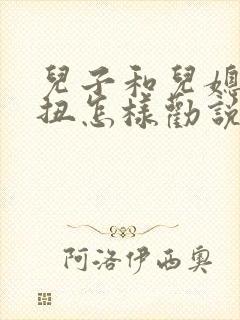 兒子和兒媳
扭怎樣勸説
阿洛伊西奧